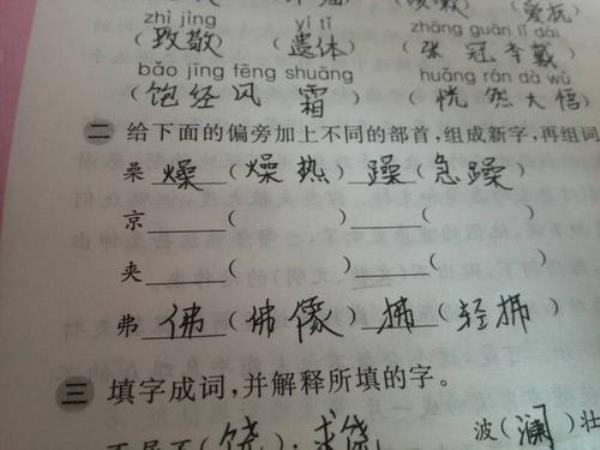 zhì jìng yí tǐ zhāng guān lǐ dài
(致敬) (遗体) (张冠李戴)
bǎo jīng fēng shuāng huǎng rán dà wù
(饱经风霜) (恍然大悟)
二 给下面的偏旁加上不同的部首,组成新字,再组词
喿 燥 (燥热) 躁 (急躁)
京 ( ) ( )
夹 ( ) ( )
弗 佛 (佛像) 拂 (轻拂)
三 填字成词,并解释所填的字。
(饶):求饶 波(澜)壮